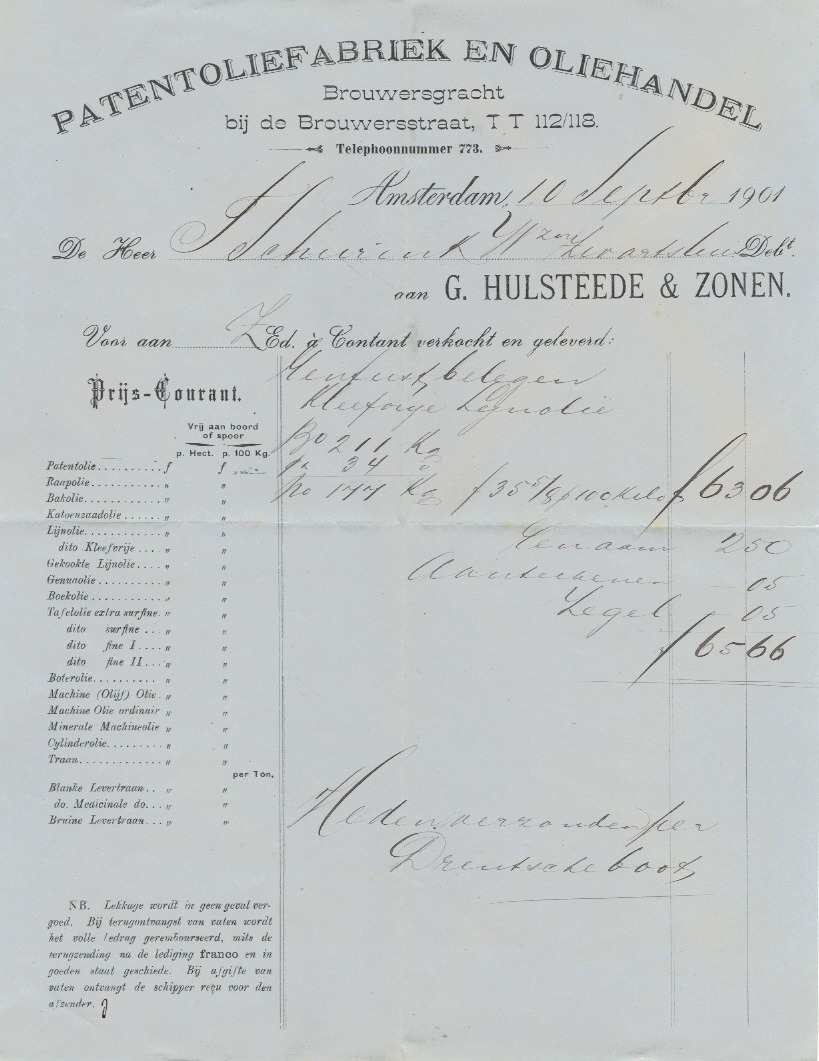 PATENTOLIEFABRIEK EN OLIEHANDEL
Brouwersgracht
bij de Brouwersstraat, TT 112/118.
Telephoonnummer 773.
Amsterdam, 10 Septbr 1901
De Heer F Schurink Wzn Zwartsluis Debt.
aan G. HULSTEEDE & ZONEN.
Voor aan Z Ed. à Contant verkocht en geleverd:
Een fust belegen
Kleefvrije Lijnolie
Bo 211 Kg
Ta 34 "
No 177 Kg f 35 5/8 p 100 Kilo f 63 06
2 50
Aanteekenen - 05
Zegel - 05
f 65 66
Heden verzonden per
Drentsche boot
Prijs-Courant.
Vrij aan boord
of spoor
p. Hect. p. 100 Kg.
Patentolie.......... f f
Raapolie.......... " "
Bakolie.......... " "
Katoenzaadolie...... " "
Lijnolie.......... " "
dito Kleefvrije.... " "
Gekookte Lijnolie... " "
Genuaolie.......... " "
Boekolie.......... " "
Tafelolie extra surfine. " "
dito surfine... " "
dito fine I.... " "
dito fine II... " "
Boterolie.......... " "
Machine (Olijf) Olie. " "
Machine Olie ordinair " "
Minerale Machineolie " "
Cylinderolie......... " "
Traan............. " "
per Ton.
Blanke Levertraan.. " "
do. Medicinale do... " "
Bruine Levertraan... " "
NB. Lekkage wordt in geen geval ver-
goed. Bij terugontvangst van vaten wordt
het volle bedrag gerembourseerd, mits de
terugzending na de lediging franco en in
goeden staat geschiede. Bij afgifte van
vaten ontvangt de schipper reçu voor den
afzender.